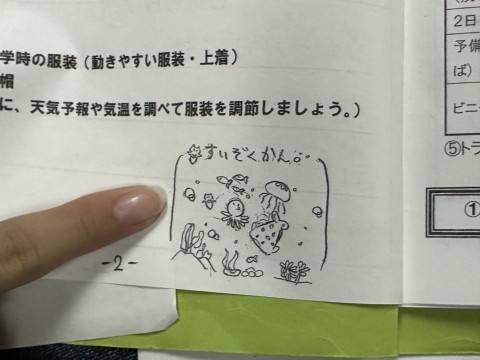 学時の服装（動きやすい服装・上着）
帽
に、天気予報や気温を調べて服装を調節しましょう。）
すいぞくかん
-2-
2日
予備
ば）
ビニ
⑤トラ
①